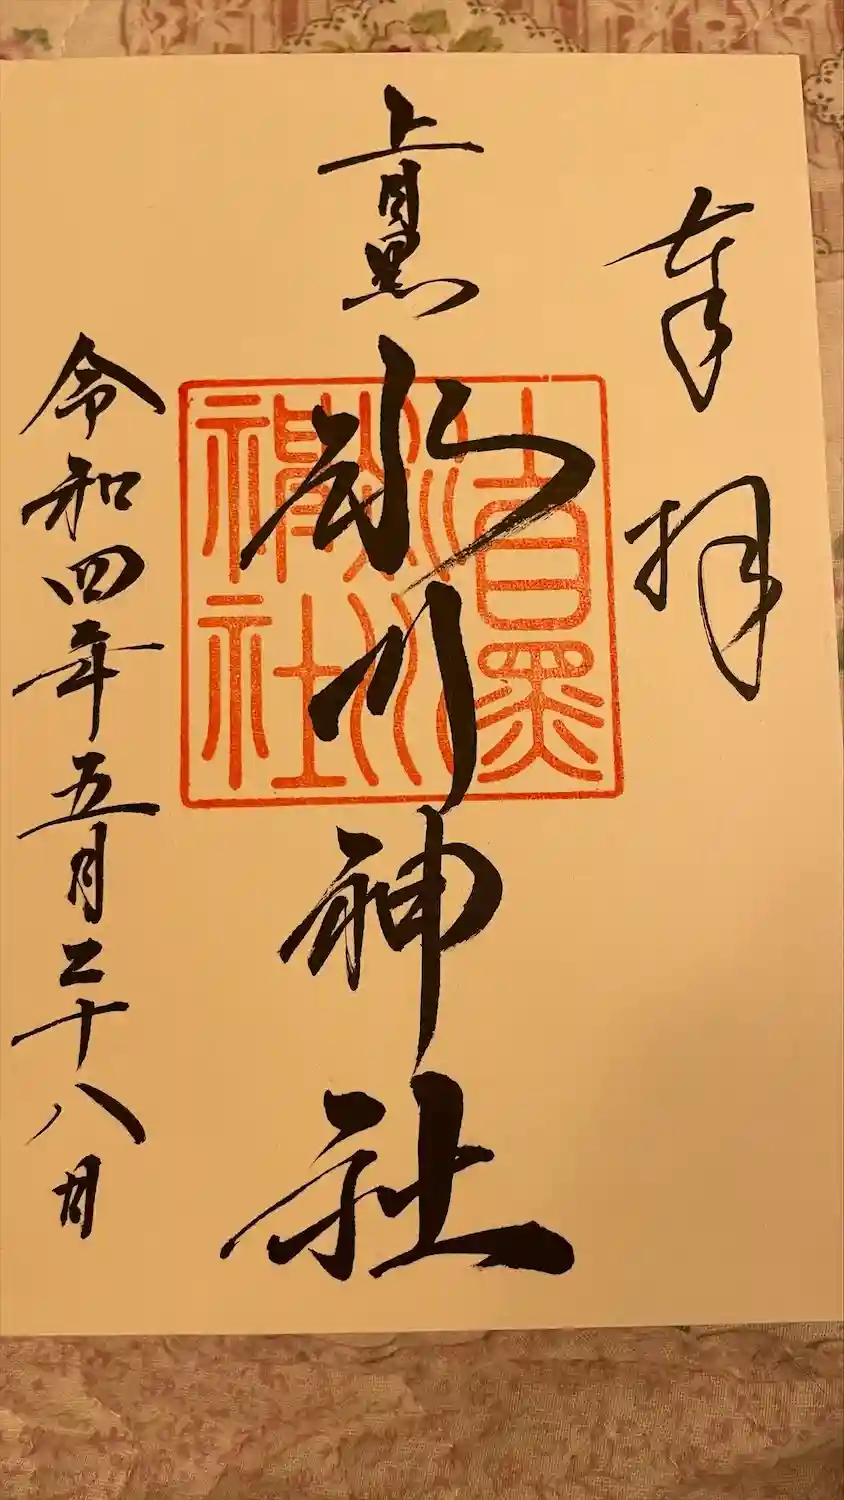 奉拝
上目黒
氷川神社
令和四年五月二十八日
上目黒
氷川
神社